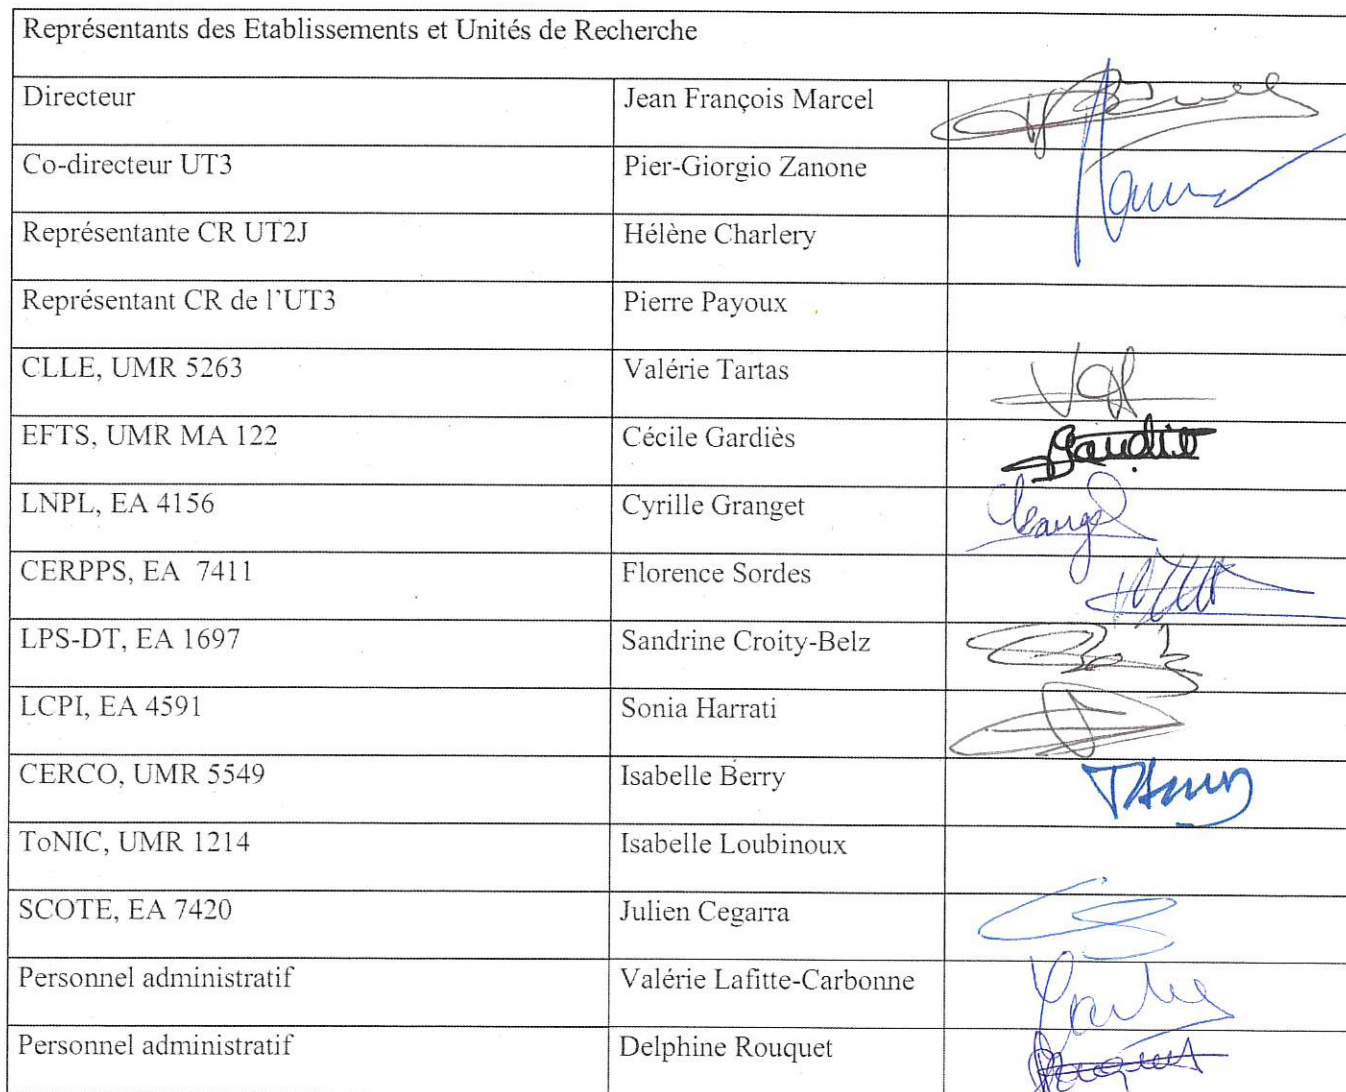 Représentants des Etablissements et Unités de Recherche
Directeur Jean François Marcel
Co-directeur UT3 Pier-Giorgio Zanone
Représentante CR UT2J Hélène Charlery
Représentant CR de l'UT3 Pierre Payoux
CLLE, UMR 5263 Valérie Tartas
EFTS, UMR MA 122 Cécile Gardiès
LNPL, EA 4156 Cyrille Granget
CERPPS, EA 7411 Florence Sordes
LPS-DT, EA 1697 Sandrine Croity-Belz
LCPI, EA 4591 Sonia Harrati
CERCO, UMR 5549 Isabelle Berry
ToNIC, UMR 1214 Isabelle Loubinoux
SCOTE, EA 7420 Julien Cegarra
Personnel administratif Valérie Lafitte-Carbonne
Personnel administratif Delphine Rouquet